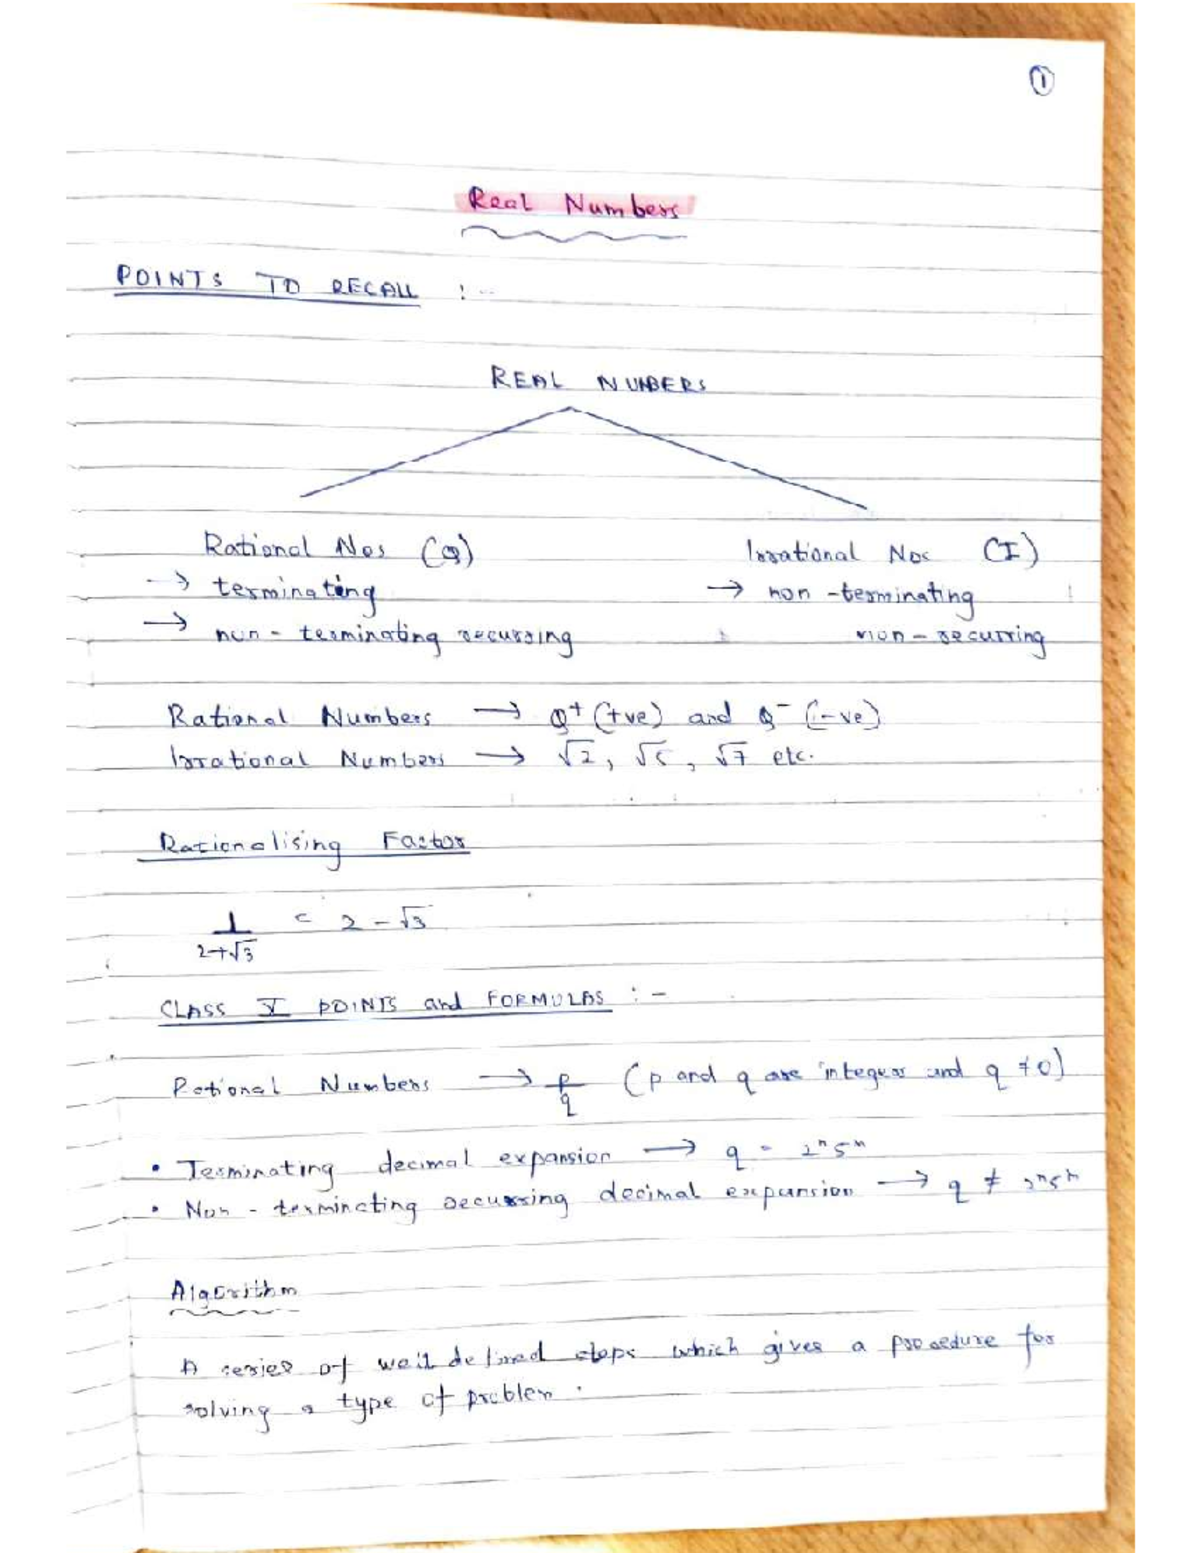 1
Real Numbers
POINTS TO RECALL :-
REAL NUMBERS
Rational Nos (Q)
Irrational Nos (I)
→ terminating
→ non-terminating
→ non-terminating recurring
non-recurring
Rational Numbers → Q⁺ (+ve) and Q⁻ (-ve)
Irrational Numbers → √2, √5, √7 etc.
Rationalising Factor
1/2+√3 = 2-√3
CLASS X POINTS and FORMULAS :-
Rational Numbers → p/q (p and q are integers and q ≠ 0)
• Terminating decimal expansion → q = 2ⁿ5ᵐ
• Non-terminating recurring decimal expansion → q ≠ 2ⁿ5ᵐ
Algorithm
A series of well defined steps which gives a procedure for
solving a type of problem.